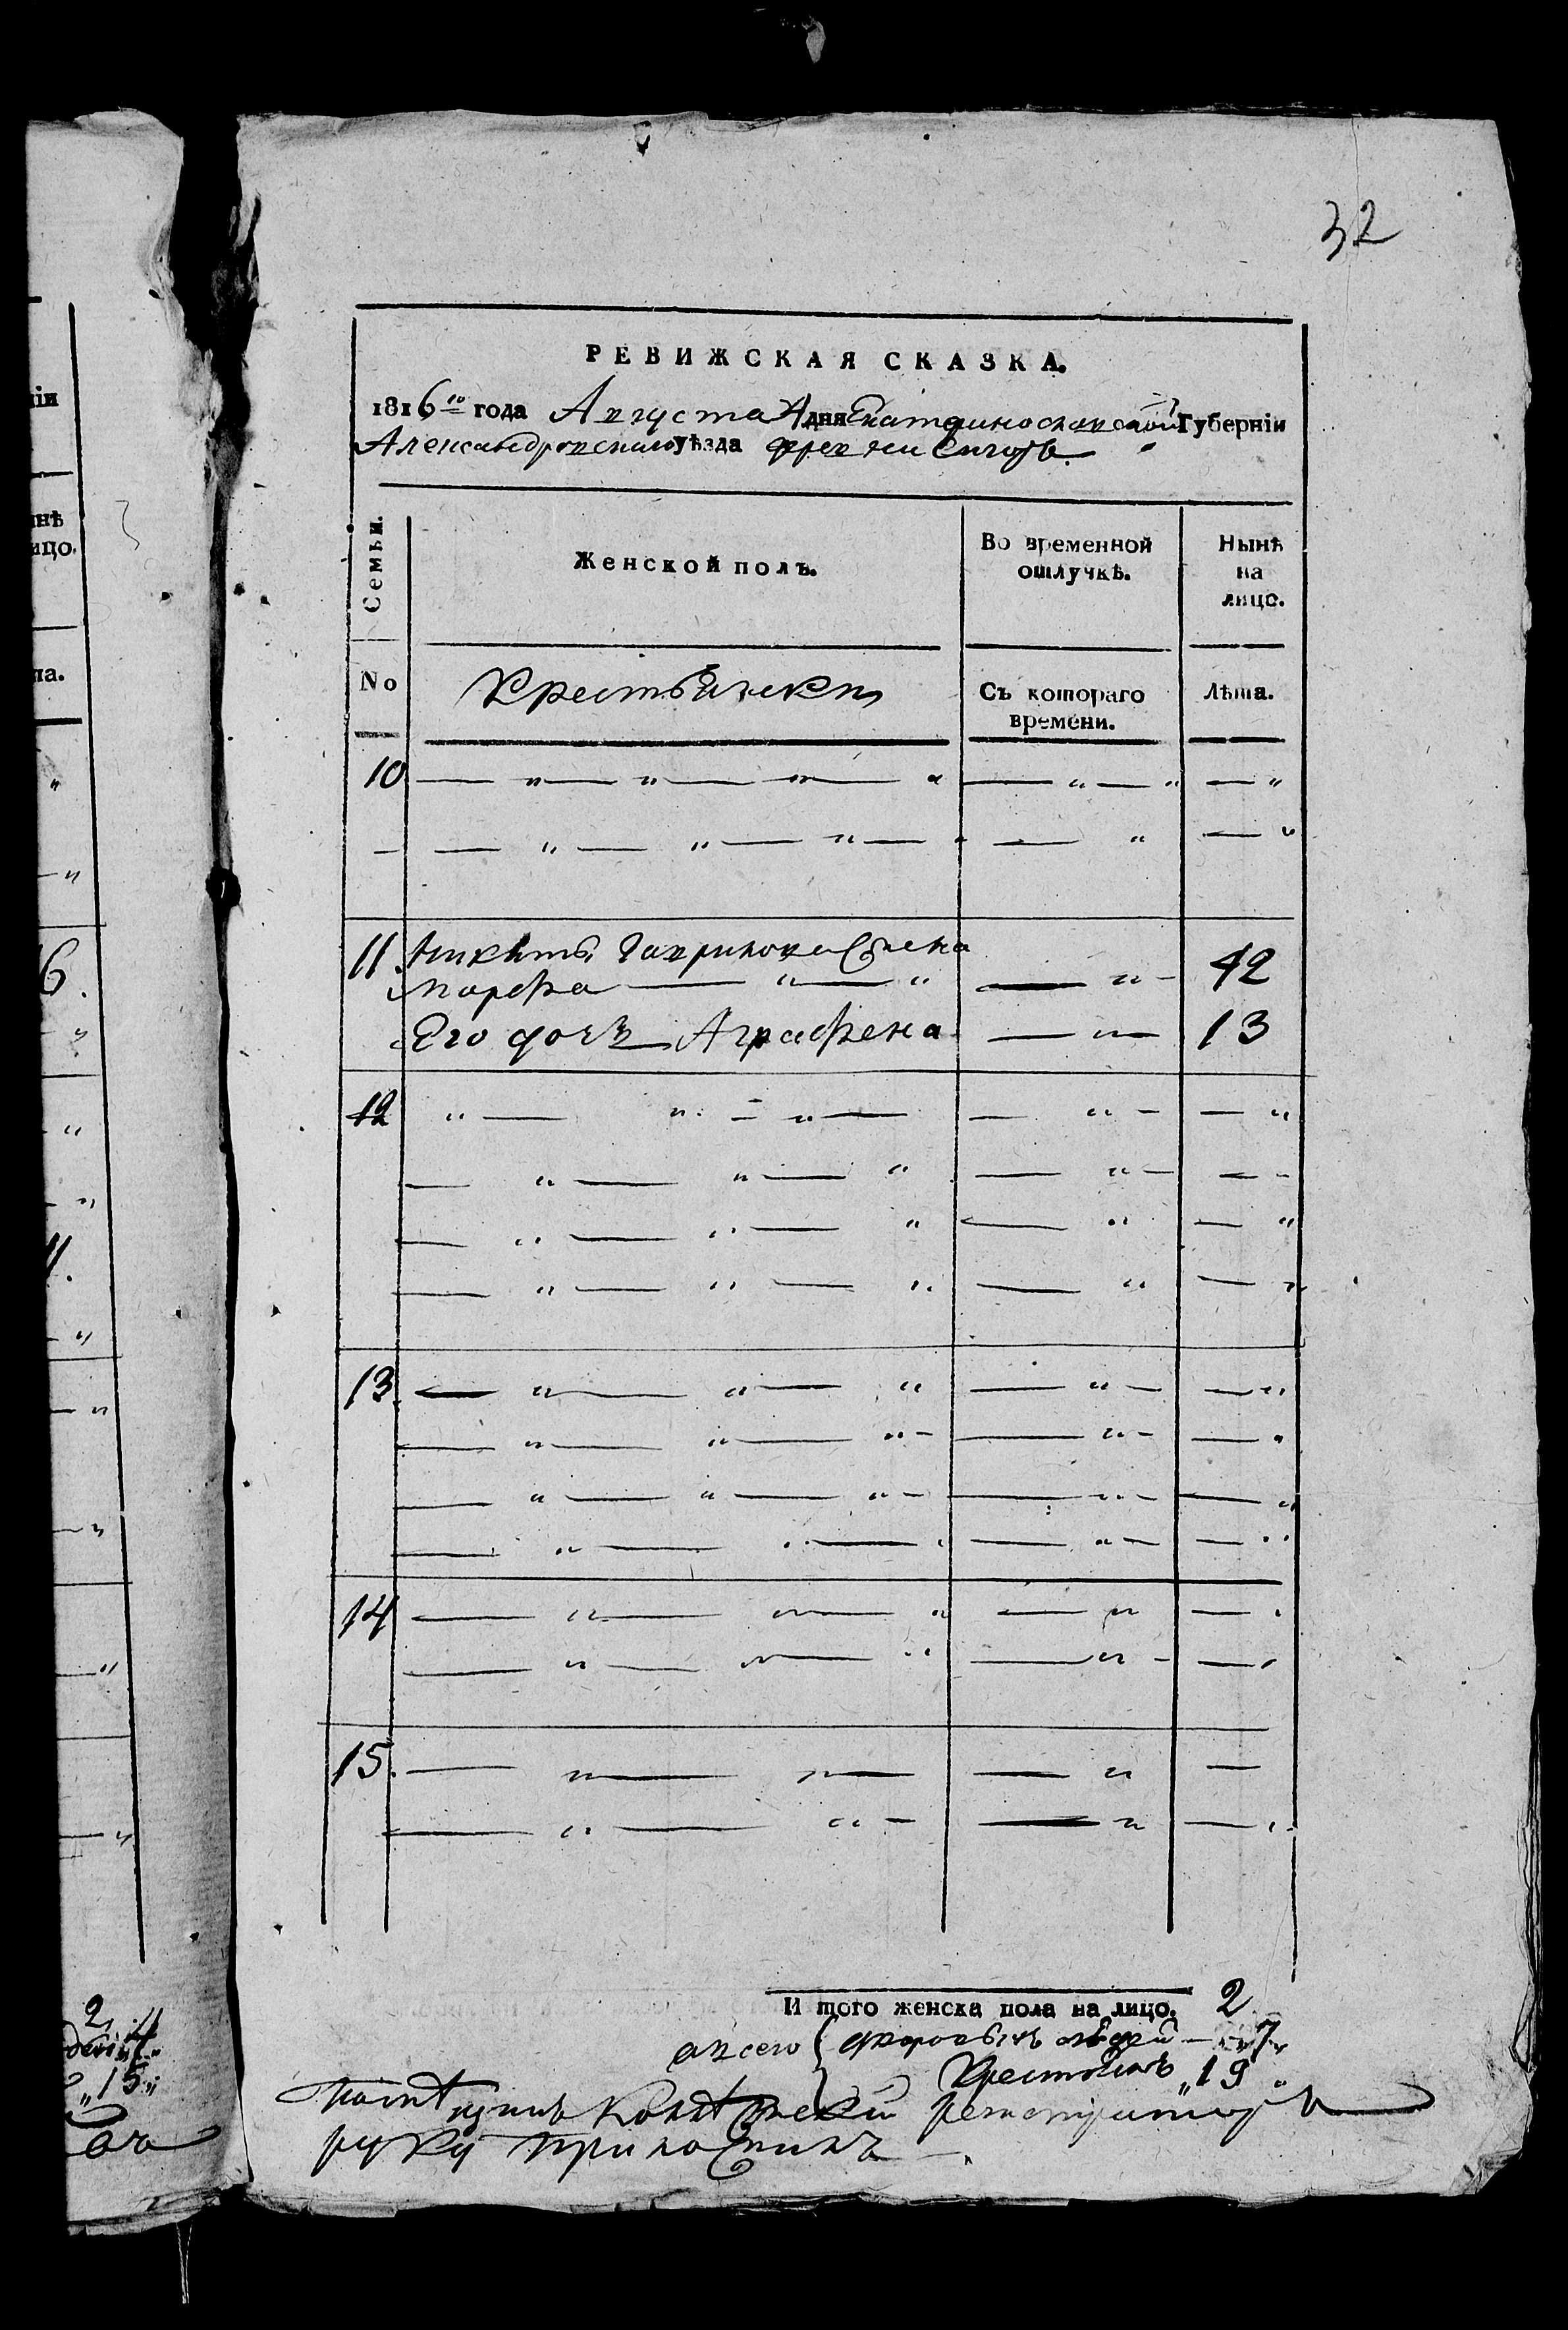 32
РЕВИЖСКАЯ СКАЗКА.
1816го года Августа 4 дня Екатеринославской Губерніи
Александровскаго уѣзда
Семьи.
Женской полъ.
Во временной отлучкѣ.
Нынѣ на лицо.
No
Крестьянки
Съ котораго времени.
Лѣта.
10 — " — " — " — " — " — " — "
— — " — " — " — — " — "
11. Никиты Гаврилова Жена
Марфа — " — " — " — 42
Его дочь Аграфена — " — 13
12 " — " — " — — " — — "
— " — " — " — " — — -
— " — " — " — " — "
— " — " — " — " — "
13. — " — " — " — " — — "
— " — " — " — — " — — "
— " — " — " — — " — — "
— " — " — " — " — — "
14 — " — " — " — " — "
— " — " — " — " — — "
15. — " — " — — " —
— " — " — — " — "
И того женска пола на лицо. 2
а всего { дворовыхъ людей — 7
Крестьянъ "19"
регистраторъ
руку приложилъ